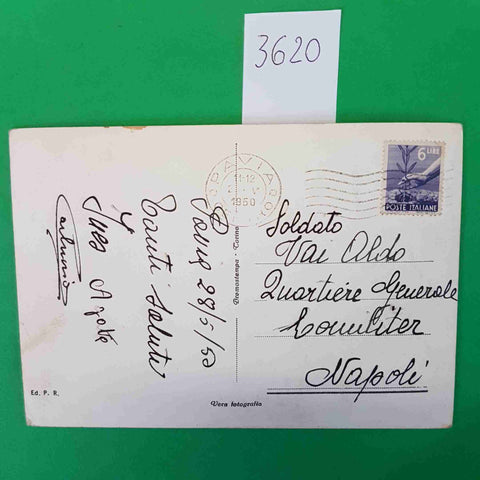 3620
PAVIA
11-12
V
1950
6 LIRE
POSTE ITALIANE
Pavia 28/5/50
Tanti saluti
Soldato
Vai Aldo
Quartiere Generale
Comiliter
Napoli
Domostampa - Torino
Ed. P. R.
Vera fotografia